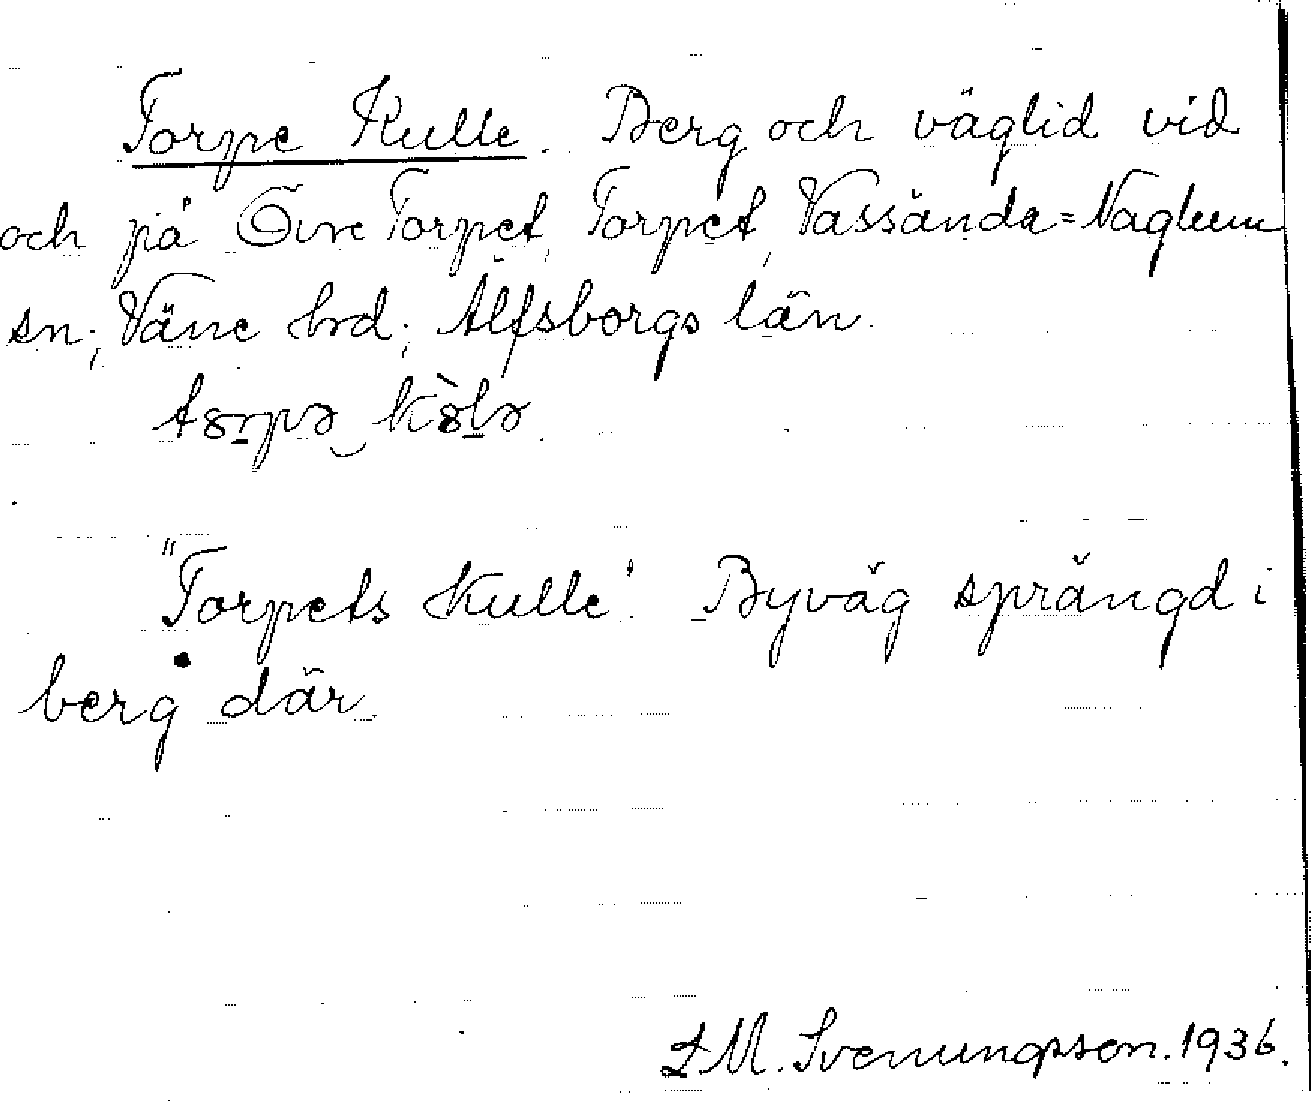 Torpe Kulle. Berg och väglid vid
och på Övre Torpet, Torpet, Vassända=Naglum
sn; Väne hrd; Älfsborgs län.
"Torpets Kulle". Byväg sprängd i
berg där.
I.M. Svenungsson. 1936.